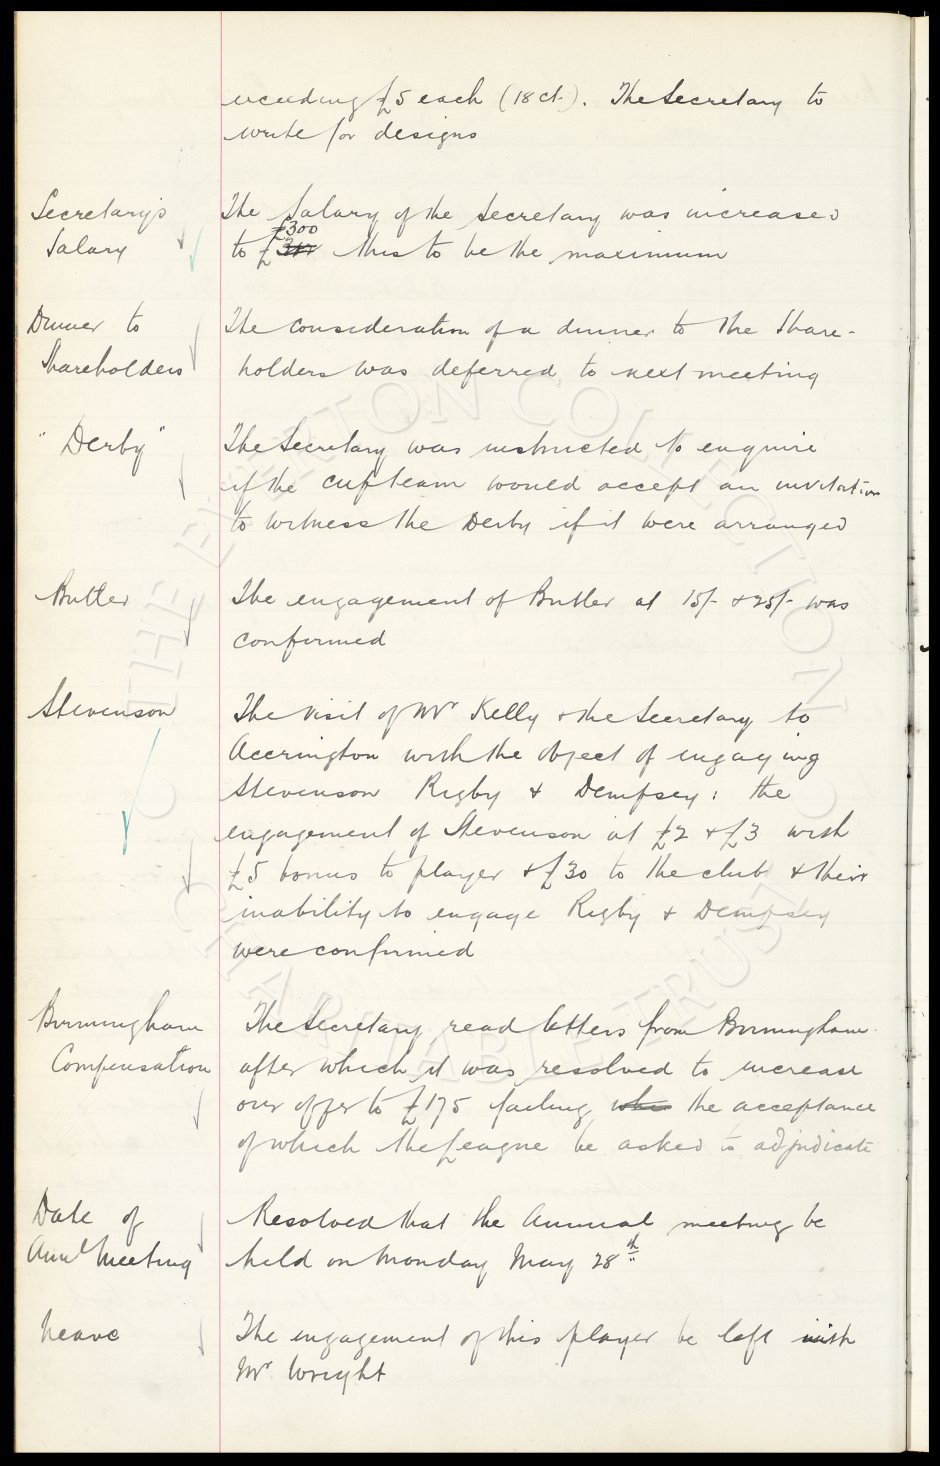 exceeding £5 each (18 ct.). The Secretary to
write for designs
Secretary's
Salary
The Salary of the Secretary was increased
£300
to £300 this to be the maximum
Dinner to
Shareholders
The consideration of a dinner to the Share-
holders was deferred to next meeting
"Derby"
The Secretary was instructed to enquire
if the cup team would accept an invitation
to witness the Derby if it were arranged
Butler
The engagement of Butler at 15/- & 25/- was
confirmed
Stevenson
The visit of Mr Kelly & the Secretary to
Accrington with the object of engaging
Stevenson Rigby & Dempsey: the
engagement of Stevenson at £2 & £3 with
£5 bonus to player & £30 to the club & their
inability to engage Rigby & Dempsey
were confirmed
Birmingham
Compensation
The Secretary read letters from Birmingham
after which it was resolved to increase
our offer to £175 failing the acceptance
of which the League be asked to adjudicate
Date of
Annl Meeting
Resolved that the Annual meeting be
held on Monday May 28th
Neave
The engagement of this player be left with
Mr Wright
THE EVERTON COLLECTION
CHARITABLE TRUST